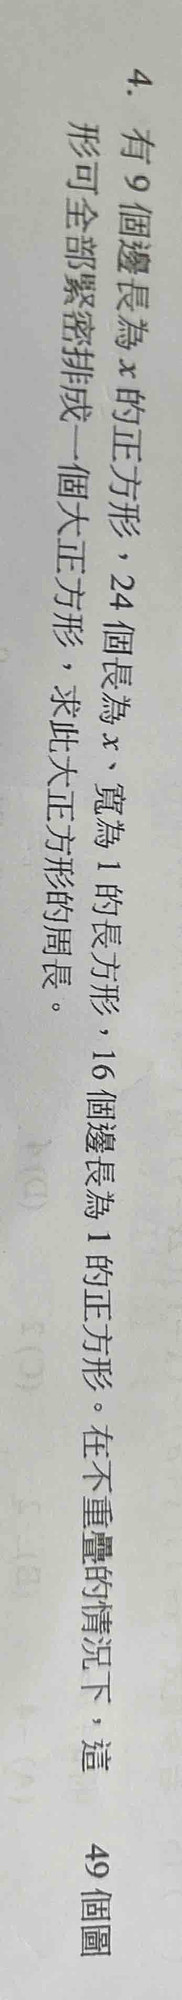 4. 有 9 個邊長為 x 的正方形，24 個長為 x、寬為 1 的長方形，16 個邊長為 1 的正方形。在不重疊的情況下，這 49 個圖
形可全部緊密排成一個大正方形，求此大正方形的周長。